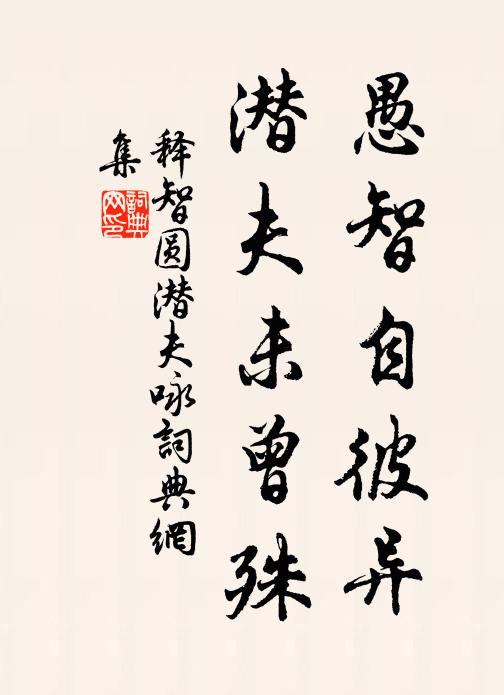 愚智自彼异
潜夫未曾殊
释智圆潜夫咏詞典網
集
詞典
网印